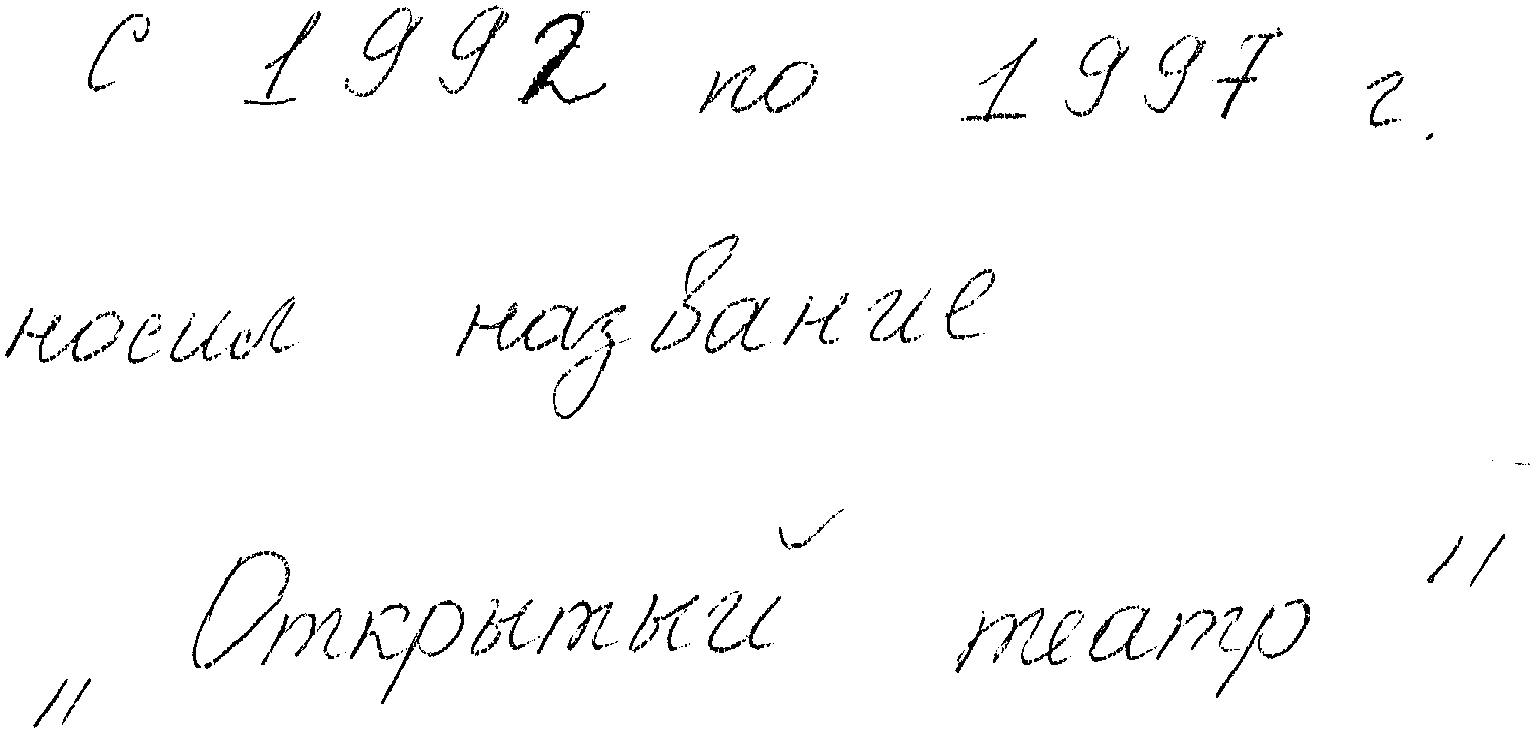 с 1992 по 1997 г.
носил название
„Открытый театр"